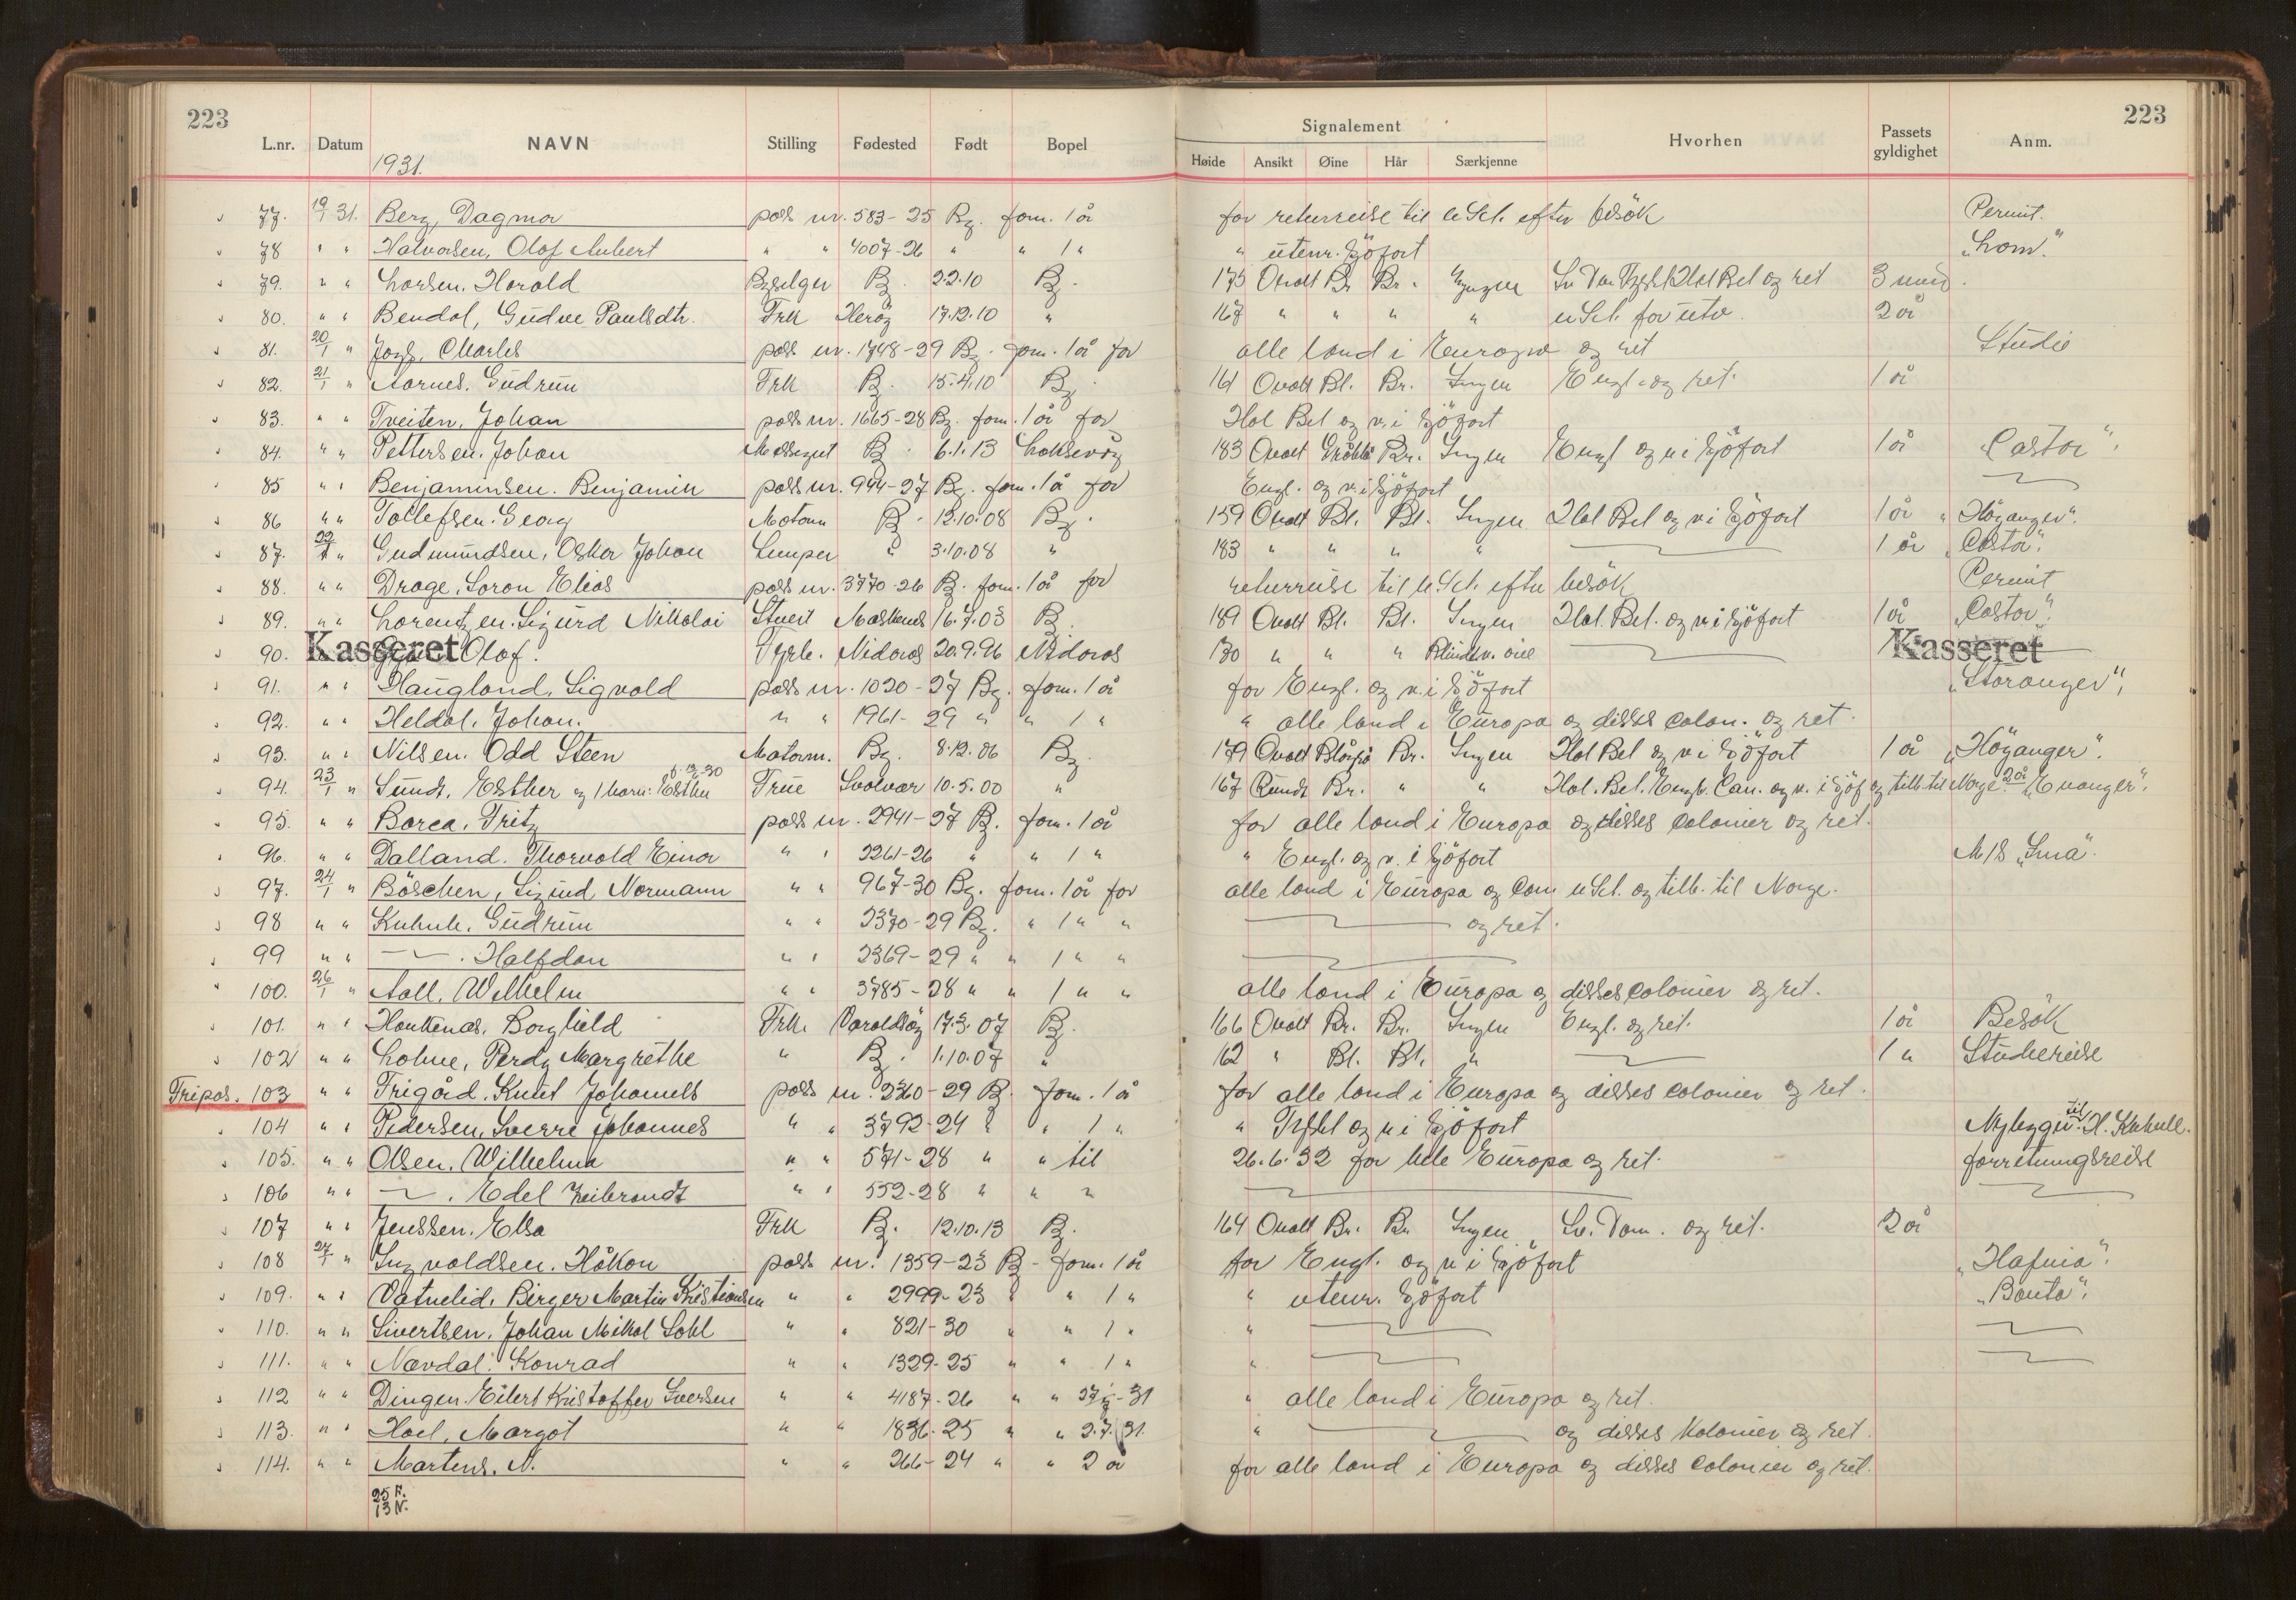 223
223
L.nr. Datum NAVN Stilling Fødested Født Bopel Signalement Hvorhen Passets gyldighet Anm.
Høide Ansikt Øine Hår Særkjenne
1931.
77. 19/1 31. Berg, Dagmar pass nr. 583-25 Bg. forn. 1 år for returreise til uSct. efter besök Permit.
78 " " Halvorsen, Olaf Aubert " " 4007-26 " " 1 " " utenr. Sjöfart "Lom."
79. " " Larsen. Harald Bg. 2.2.10 Bg. 175 Ovalt Br Br. Ingen Hol Bel og ret 3 mnd.
80. " " Bendal, Gudve Paulsdtr. Frk Heröy 17.12.10 " 167 " " " " uSct. for utv. 2 år
81. 20/1 " Charles pass nr. 1748-29 Bg. forn. 1 år for alle land i Europa og ret Studie
82. 21/1 " Aarnes. Gudrun Frk B. 15.4.10 Bg. 161 Ovalt Bl. Br. Ingen Engl. og ret. 1 år
83. " " Tveiten, Johan pass nr. 1665-28 Bg. forn. 1 år for Hol Bel og v. i Sjöfart
84. " " Pettersen. Johan Messegut B. 6.1.13 Laksevåg 183 Ovalt Gråblå Br. Ingen Engl og v i Sjöfart 1 år "Castor".
85 " " Benjaminsen. Benjamin pass nr. 944-27 Bg. forn. 1 år for Engl. og v. i Sjöfart —
86 " " Tollefsen. Georg Motorm B. 12.10.08 Bg. 159 Ovalt Bl. Bl. Ingen Hol Bel og v i Sjöfart 1 år "Höyanger".
87. 22/1 " Gudmundsen, Oskar Johan Lemper " 3.10.08 " 183 " " " " — 1 år "Castor".
88. " " Drage. Soron Elias pass nr. 3770-26 B. forn. 1 år for returreise til uSct. efter besök Permit
89. " " Lorentzen. Sigurd Nikolai Stuert 16.7.03 B. 189 Ovalt Bl. Bl. Ingen Hol. Bel. og v i Sjöfart 1 år "Castor".
90. Kasseret Olaf. Fyrb. Nidaros 20.9.96 Nidaros 130 " " " Blind v. öie — Kasseret
91. " " Haugland, Sigvald pass nr. 1020-27 Bg. forn. 1 år for Engl. og v. i Sjöfart "Storanger",
92. " " Heldal, Johan. " " 1961-29 " " 1 " " alle land i Europa og disses colon. og ret.
93. " " Nilsen. Odd Steen Motorm. Bg. 8.12.06 Bg. 179 Ovalt Blågrå Br. Ingen Hol Bel og v i Sjöfart 1 år "Höyanger".
94. 23/1 " Sundt, Esther og 1 barn: Esther 6.12.30 Frue Svolvær 10.5.00 " 167 Rundt Br. " " Hol. Bel. Engl. Can. og v. i Sjöf og tilb. til Norge 2 år "Evanger".
95. " " Borca, Fritz pass nr. 2941-27 B. forn. 1 år for alle land i Europa og disses colonier og ret.
96. " " Dalland. Thorvald Einar " " 2261-26 " " 1 " " Engl. og v. i Sjöfart M/S "Sma".
97. 24/1 " Böschen, Sigurd Normann " " 967-30 Bg. forn. 1 år for alle land i Europa og Can uSct. og tilb. til Norge.
98 " " Kuhnle. Gudrun " " 2370-29 Bg. " 1 " " — og ret.
99 " " — . Halfdan " " 2369-29 " " 1 " " —
100. 26/1 " Aall. Wilhelm " " 3785-28 " " 1 " " alle land i Europa og disses colonier og ret.
101. " " Haukenas, Borghild Frk. Varaldsöy 17.3.07 B. 166 Ovalt Br. Br. Ingen Engl. og ret. 1 år Besök
102 " " Lohne, Perdy Margrethe " B. 1.10.07 " 162 " Bl. Bl. " — 1 " Studiereise
Fripas. 103 " " Frigård. Knut Johannes pass nr. 2260-29 B. forn. 1 år for alle land i Europa og disses colonier og ret.
104 " " Pedersen, Sverre Johannes " " 3792-24 " " 1 " " Tyskl og v i Sjöfart Nybygn. til H. Kuhnle.
105. " " Olsen. Wilhelma " " 571-28 " " til 26.6.32 for hele Europa og ret. forretningsreise
106 " " — . Edel Zeibrandt " " 552-28 " " " — —
107 " " Jenssen. Elsa Frk B. 12.10.13 B. 164 Ovalt Br. Br Ingen Sv. Dan. og ret. 2 år
108 27/1 " Ingvaldsen. Håkon pass nr. 1359-23 B. forn. 1 år for Engl. og v i Sjöfart "Hafnia".
109. " " Vatnelid, Birger Martin Kristiansen " " 2999-23 " " 1 " " utenr. Sjöfart "Banta".
110. " " Sivertsen. Johan Mikal Sohl " " 821-30 " " 1 " " — —
111. " " Nævdal. Konrad " " 1329-25 " " 1 " " — —
112 " " Dingen. Eilert Kristoffer Iversen " " 4187-26 " " 27/7-31 " alle land i Europa og ret.
113. " " Hoel, Margot " " 1836-25 " " 2.7.31. " — og disses Kolonier og ret.
114. " " Martens. N. " " 266-24 " " 2 år for alle land i Europa og disses Colonier og ret.
25 F.
13 N.